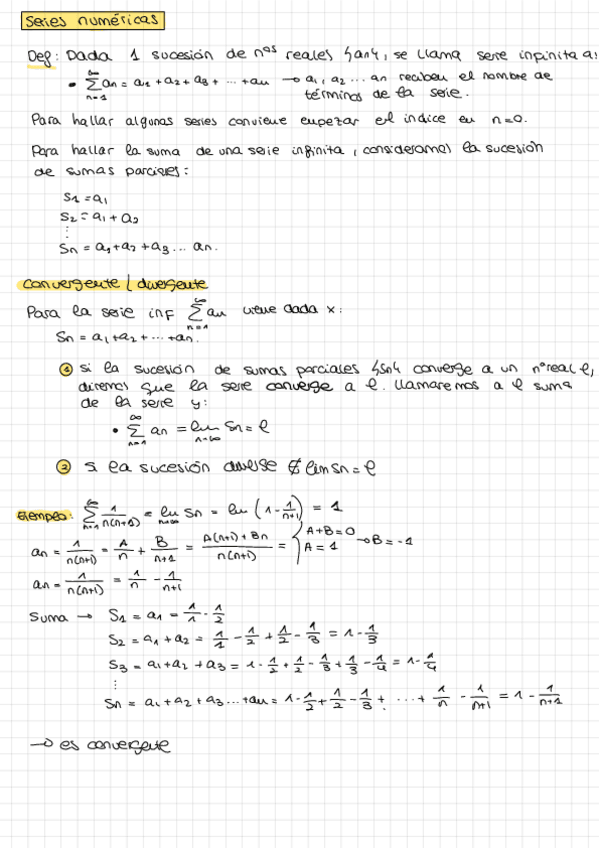 Series numéricas
Def: Dada 1 sucesión de nos reales {an}, se llama serie infinita a:
• ∞∑n=1 an = a1 + a2 + a3 + ... + an → a1, a2 ... an reciben el nombre de
términos de la serie.
Para hallar algunas series conviene empezar el índice en n=0.
Para hallar la suma de una serie infinita, consideramos la sucesión
de sumas parciales:
S1 = a1
S2 = a1 + a2
⋮
Sn = a1 + a2 + a3 ... an.
convergente / divergente
Para la serie inf ∞∑n=1 an viene dada x:
Sn = a1 + a2 + ... + an.
1 si la sucesión de sumas parciales {sn} converge a un nº real l,
diremos que la serie converge a l. llamaremos a l suma
de la serie y:
• ∞∑n=1 an = lim n→∞ Sn = l
2 si la sucesión diverge ∄ lim Sn = l
Ejemplo: ∞∑n=1 1/n(n+1) = lim n→∞ Sn = lim (1 - 1/n+1) = 1
an = 1/n(n+1) = A/n + B/n+1 = A(n+1) + Bn/n(n+1) = { A+B=0 A=1 → B = -1
an = 1/n(n+1) = 1/n - 1/n+1
Suma → S1 = a1 = 1/1 - 1/2
S2 = a1 + a2 = 1/1 - 1/2 + 1/2 - 1/3 = 1 - 1/3
S3 = a1 + a2 + a3 = 1 - 1/2 + 1/2 - 1/3 + 1/3 - 1/4 = 1 - 1/4
⋮
Sn = a1 + a2 + a3 ... + an = 1 - 1/2 + 1/2 - 1/3 + ... + 1/n - 1/n+1 = 1 - 1/n+1
→ es convergente